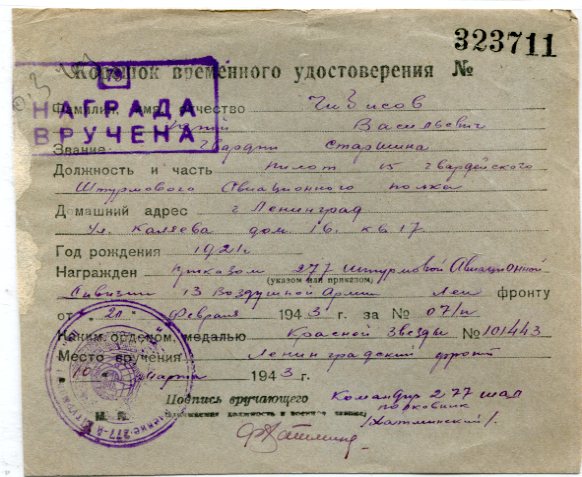 323711
Корешок временного удостоверения №
НАГРАДА
ВРУЧЕНА
Фамилия, имя, отчество Чибисов
Васильевич
Звание Гвардии старшина
Должность и часть пилот 15 гвардейского
Штурмового Авиационного полка
Домашний адрес г Ленинград
Ул. Каляева дом 16. кв. 17
Год рождения 1921г
Награжден приказом 277 Штурмовой Авиационной
(указом или приказом)
Дивизии 13 Воздушной Армии Лен фронту
от " 21 " Февраля 1943 г. за № 07/н
Каким орденом, медалью Красной Звезды № 101443
Место вручения Ленинградский фронт
" 10 " марта 1943 г.
М. П.
Подпись вручающего Командир 277 шад
полковник
/Хатминский/.